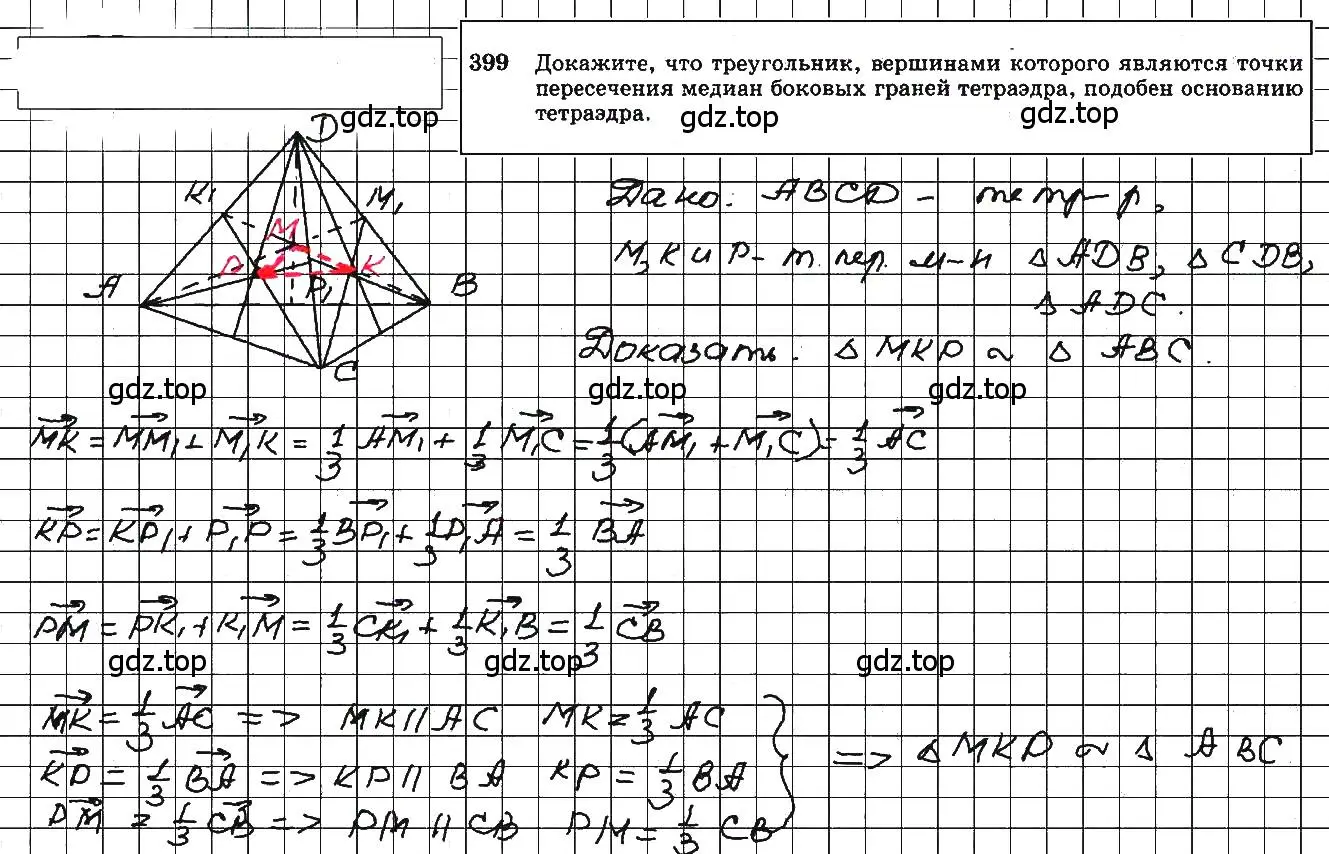 399 Докажите, что треугольник, вершинами которого являются точки
пересечения медиан боковых граней тетраэдра, подобен основанию
тетраэдра.
gdz.top gdz.top gdz.top
D
K₁ M₁
M
P K
A P₁ B
C
Дано: ABCD – тетр-р,
M, K и P – т. пер. м-н △ADB, △CDB,
△ADC.
Доказать: △MKP ~ △ABC.
gdz.top gdz.top gdz.top
MK⃗ = MM₁⃗ + M₁K⃗ = 1/3 AM₁⃗ + 1/3 M₁C⃗ = 1/3 (AM₁⃗ + M₁C⃗) = 1/3 AC⃗
KP⃗ = KP₁⃗ + P₁P⃗ = 1/3 BP₁⃗ + 1/3 P₁A⃗ = 1/3 BA⃗
PM⃗ = PK₁⃗ + K₁M⃗ = 1/3 CK₁⃗ + 1/3 K₁B⃗ = 1/3 CB⃗
gdz.top gdz.top gdz.top
MK⃗ = 1/3 AC⃗ => MK || AC MK = 1/3 AC
KP⃗ = 1/3 BA⃗ => KP || BA KP = 1/3 BA } => △MKP ~ △ABC
PM⃗ = 1/3 CB⃗ => PM || CB PM = 1/3 CB